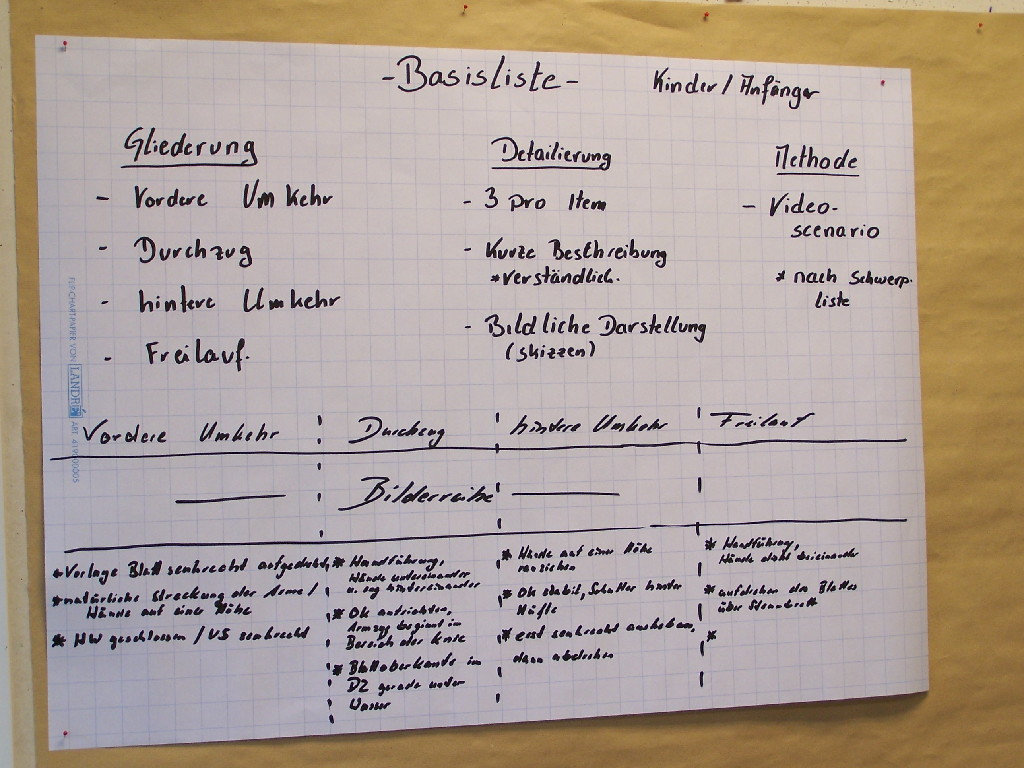 -Basisliste-
Kinder/Anfänger
Gliederung
- Vordere Umkehr
- Durchzug
- hintere Umkehr
- Freilauf.
Detailierung
- 3 pro Item
- Kurze Beschreibung
*verständlich.
- Bildliche Darstellung
(skizzen)
Methode
- Video-
scenario
* nach Schwerp.
liste
FLIPCHARTPAPIER VON LANDRÉ ART
Vordere Umkehr
Durchzug
hintere Umkehr
Freilauf
Bilderreihe
*Vorlage Blatt senkrecht aufgedreht
*natürliche Streckung der Arme/
Hände auf einer Höhe
* HW geschlossen / US senkrecht
* Handführung,
Hände untereinander
u. hintereinander
* OK aufrichten,
Armzug beginnt im
Bereich der Knie
* Blattoberkante im
DZ gerade unter
Wasser
* Hände auf einer Höhe
ranziehen
* OK stabil, Schulter hinter
Hüfte
* erst senkrecht ausheben,
dann abdrehen
* Handführung,
Hände dicht beieinander
* aufdrehen des Blattes
über Stemmbrett
*